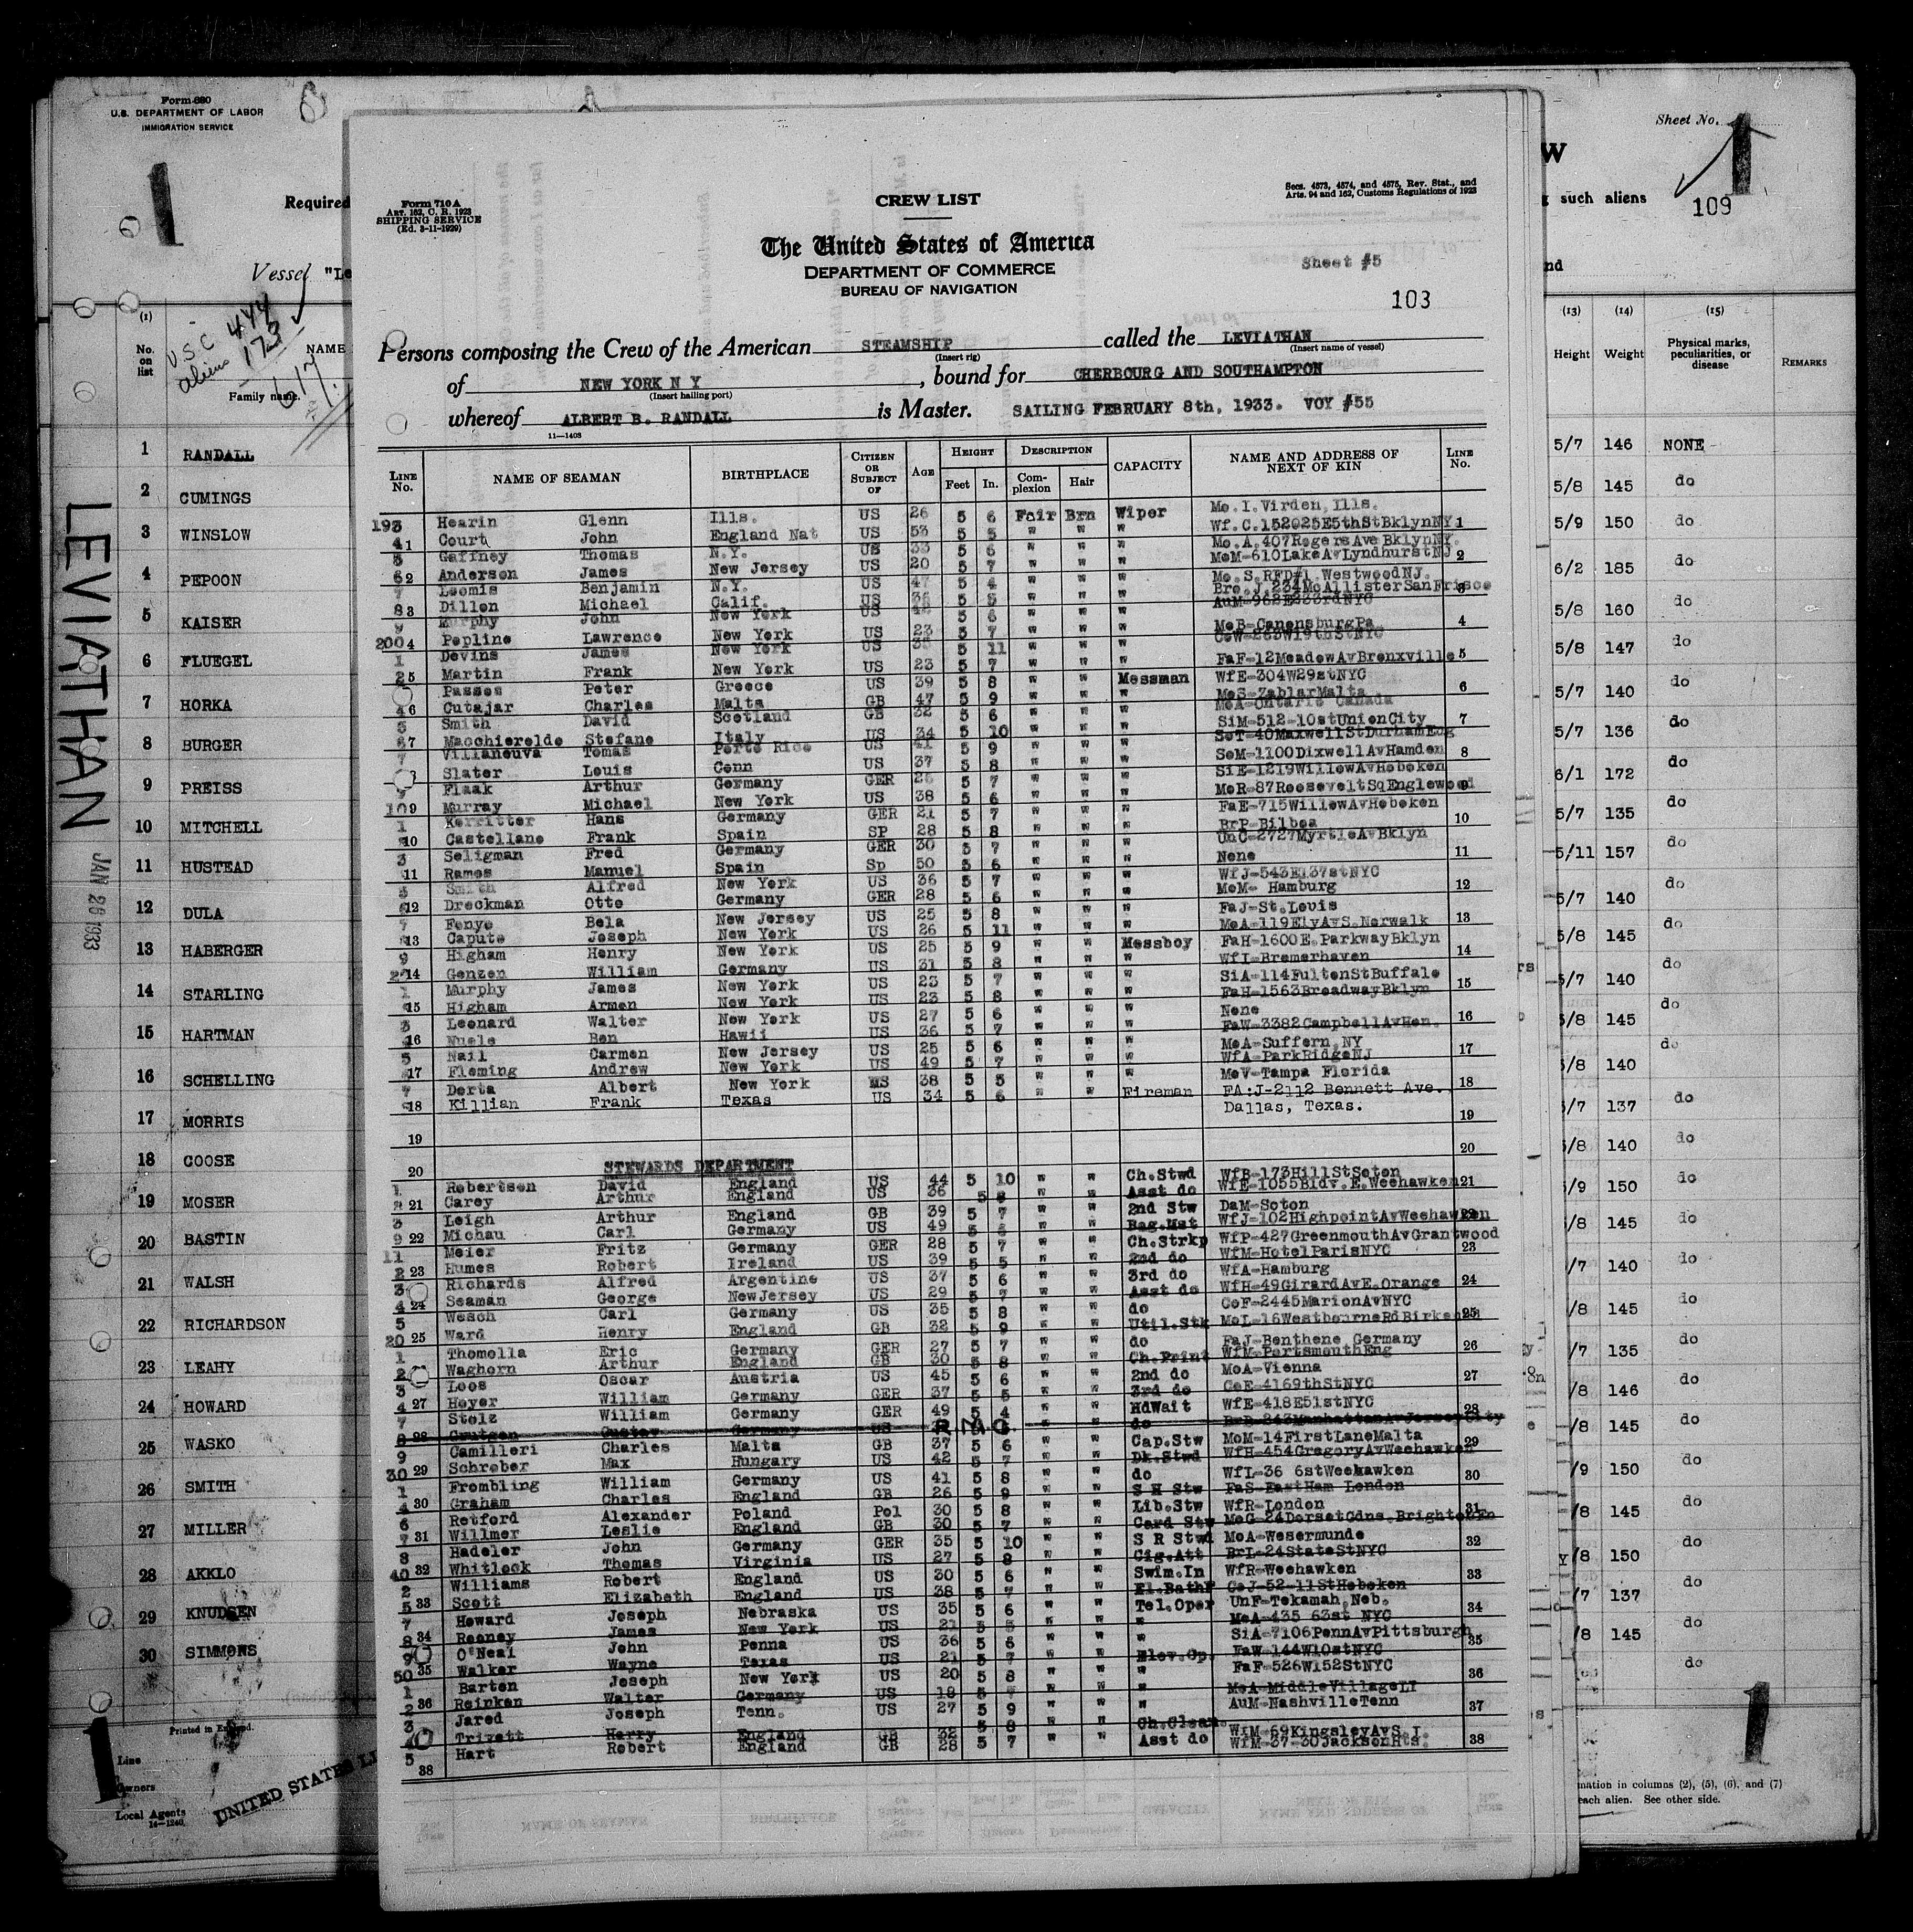 Form 680
U.S. DEPARTMENT OF LABOR
IMMIGRATION SERVICE
1
Required
Vessel "Le
U.S.C 444
alien 173
617
(1)
No. on list
NAME
Family name.
1 RANDALL
2 CUMINGS
3 WINSLOW
4 PEPOON
5 KAISER
6 FLUEGEL
7 HORKA
8 BURGER
9 PREISS
10 MITCHELL
11 HUSTEAD
12 DULA
13 HABERGER
14 STARLING
15 HARTMAN
16 SCHELLING
17 MORRIS
18 GOOSE
19 MOSER
20 BASTIN
21 WALSH
22 RICHARDSON
23 LEAHY
24 HOWARD
25 WASKO
26 SMITH
27 MILLER
28 AKKLO
29 KNUDSEN
30 SIMMONS
Printed in England.
Line
Owners
Local Agents
14—1240
UNITED STATES LI
1
LEVIATHAN
JAN 26 1933
Form 710 A
ART. 162, C. R. 1923
SHIPPING SERVICE
(Ed. 3-11-1929)
CREW LIST
Secs. 4573, 4574, and 4575, Rev. Stat., and
Arts. 94 and 162, Customs Regulations of 1923
The United States of America
DEPARTMENT OF COMMERCE
BUREAU OF NAVIGATION
Sheet #5
103
Persons composing the Crew of the American STEAMSHIP called the LEVIATHAN
(Insert rig) (Insert name of vessel)
of NEW YORK N Y, bound for CHERBOURG AND SOUTHAMPTON
(Insert hailing port)
whereof ALBERT B. RANDALL is Master. SAILING FEBRUARY 8th, 1933. VOY #55
11—1403
LINE No. NAME OF SEAMAN BIRTHPLACE CITIZEN OR SUBJECT OF AGE HEIGHT Feet In. DESCRIPTION Complexion Hair CAPACITY NAME AND ADDRESS OF NEXT OF KIN LINE No.
193 Hearin Glenn Ills. US 26 5 6 Fair Brn Wiper Mo.I.Virden,Ills.
4 Court John England Nat US 53 5 5 " " " Wf.C.152025E5thStBklynNY
5 Gaffney Thomas N.Y. US 33 5 6 " " " Mo.A.407RogersAveBklynNY.
6 Anderson James New Jersey US 20 5 7 " " " MoM-610LakeAvLyndhurstNJ
7 Loomis Benjamin N.Y. US 47 5 4 " " " Mo.S.RFD#1.WestwoodNJ.
8 Dillon Michael Calif. US 36 5 5 " " " Bro.J.234McAllisterSanFrisco
9 Murphy John New York US 5 6 " " " AuM-962E233rdNYC
200 Popline Lawrence New York US 23 5 7 " " " MoB-CanonsburgPa
1 Devins James New York US 35 5 11 " " " CoW-263W19thStNYC
2 Martin Frank New York US 23 5 7 " " " FaF-12MeadowAvBronxville
Passos Peter Greece US 39 5 8 " " Messman WfE-304W29stNYC
4 Cutajar Charles Malta GB 47 5 9 " " " MoS-ZablarMalta
5 Smith David Scotland GB 32 5 6 " " " MoA-Ontario Canada
6 Macchierelde Stefano Italy US 34 5 10 " " " SiM-512-10stUnionCity
7 Villaneuva Tomas Porto Rico US 41 5 9 " " " SoT-40MaxwellStDurhamEng
Slater Louis Conn US 37 5 8 " " " SoM-1100DixwellAvHamden
9 Flaak Arthur Germany GER 26 5 7 " " " SiE-1219WillowAvHoboken
10 Murray Michael New York US 38 5 6 " " " MoR-87RooseveltSqEnglewood
1 Kerritter Hans Germany GER 21 5 7 " " " FaE-715WillowAvHoboken
Castellano Frank Spain SP 28 5 8 " " " BrP-Bilboa
3 Seligman Fred Germany GER 30 5 7 " " " UnC-2727MyrtleAvBklyn
Ramos Manuel Spain Sp 50 5 6 " " " None
5 Smith Alfred New York US 36 5 7 " " " WfJ-543E137stNYC
6 Dreckman Otto Germany GER 28 5 6 " " " MoM- Hamburg
7 Fenyo Bela New Jersey US 25 5 8 " " " FaJ-St.Louis
Capute Joseph New York US 26 5 11 " " " MoA-119ElyAvS.Norwalk
9 Higham Henry New York US 25 5 9 " " Messboy FaH-1600E.ParkwayBklyn
Genzen William Germany US 31 5 8 " " " WfI-Bremerhaven
1 Murphy James New York US 23 5 7 " " " SiA-114FultonStBuffalo
Higham Armon New York US 23 5 8 " " " FaH-1563BroadwayBklyn
3 Leonard Walter New York US 27 5 6 " " " None
Nuele Ben Hawii US 36 5 7 " " " FaW-3382CampbellAvHon.
5 Nail Carmen New Jersey US 25 5 6 " " " MoA-Suffern,NY
Fleming Andrew New York US 49 5 7 " " " WfA-ParkRidgeNJ
7 Dorta Albert New York US 38 5 5 " " " MoV-Tampa Florida
Killian Frank Texas US 34 5 6 " " Fireman FA:J-2112 Bennett Ave.
Dallas, Texas.
19
20 STEWARDS DEPARTMENT
1 Robertson David England US 44 5 10 " " Ch.Stwd WfB-173HillStSoton
2 Carey Arthur England US 36 5 8 " " Asst do WfE-1055Bldv.E.Weehawken
3 Leigh Arthur England GB 39 5 7 " " 2nd Stw DaM-Soton
9 Michau Carl Germany US 49 5 6 " " Bag.Mst WfJ-102HighpointAvWeehawken
11 Meier Fritz Germany GER 28 5 7 " " Ch.Strkp WfP-427GreenmouthAvGrantwood
2 Humes Robert Ireland US 39 5 5 " " 2nd do WfM-HotelParisNYC
3 Richards Alfred Argentine US 37 5 6 " " 3rd do WfA-Hamburg
4 Seaman George NewJersey US 29 5 7 " " Asst do WfH-49GirardAvE.Orange
5 Wesch Carl Germany US 35 5 8 " " do CoF-2445MarionAvNYC
20 Ward Henry England GB 32 5 9 " " Util.Stk MoL-16WestbourneRdBirkenhd
1 Thomolla Eric Germany GER 27 5 7 " " do FaJ-Benthene Germany
2 Waghorn Arthur England GB 30 5 8 " " Ch.Print WfM-PortsmouthEng
3 Loos Oscar Austria US 45 5 6 " " 2nd do MoA-Vienna
4 Hoyer William Germany GER 37 5 5 " " 3rd do CoE-4169thStNYC
7 Stolz William Germany GER 49 5 4 " " HdWait WfE-418E51stNYC
8 Grutgen Gustav Germany US R.M.G. do BrB-243ManhattanAvJerseyCity
9 Camilleri Charles Malta GB 37 5 6 " " Cap.Stw MoM-14FirstLaneMalta
30 Schreber Max Hungary US 42 5 7 " " Dk.Stwd WfH-454GregoryAvWeehawken
1 Frombling William Germany US 41 5 8 " " do WfL-36 6stWeehawken
4 Graham Charles England GB 26 5 9 " " S H Stw FaS-EastHam London
6 Retford Alexander Poland Pol 30 5 8 " " Lib.Stw WfR-London
7 Willmer Leslie England GB 30 5 7 " " Card Stw MoG-24DorsetGdns.BrightonEn
8 Hadeler John Germany GER 35 5 10 " " S R Stwd MoA-Wesermunde
40 Whitlock Thomas Virginia US 27 5 8 " " Cig.Att BrL-24StateStNYC
2 Williams Robert England US 30 5 6 " " Swim.In WfR-Weehawken
5 Scott Elizabeth England US 38 5 7 " " El.BathP CoJ-52-11StHoboken
7 Howard Joseph Nebraska US 35 5 6 " " Tel.Oper UnF-Tekamah,Neb.
8 Rooney James New York US 21 5 5 " " " MoA-435 63st NYC
9 O'Neal John Penna US 36 5 6 " " " SiA-7106PennAvPittsburgh
50 Walker Wayne Texas US 21 5 7 " " Elev.Op. FaW-144W10stNYC
1 Barton Joseph New York US 20 5 8 " " " FaF-526W152StNYC
2 Reinken Walter Germany US 18 5 7 " " " MoA-MiddleVillageLI
3 Jared Joseph Tenn. US 27 5 9 " " " AuM-NashvilleTenn
Trivett Harry England GB 32 5 8 " " Ch.Clean. WfM-69KingsleyAvS.I.
5 Hart Robert England GB 28 5 7 " " Asst do WfM-37-30JacksonHts.
38
Sheet No. 1
W
such aliens
109
nd
(13) (14) (15)
Height Weight Physical marks, peculiarities, or disease REMARKS
5/7 146 NONE
5/8 145 do
5/9 150 do
6/2 185 do
5/8 160 do
5/8 147 do
5/7 140 do
5/7 136 do
6/1 172 do
5/7 135 do
5/11 157 do
5/7 140 do
5/8 145 do
5/7 140 do
5/8 145 do
5/8 140 do
/7 137 do
/8 140 do
5/9 150 do
/8 145 do
/7 140 do
/8 145 do
/7 135 do
/8 146 do
/8 145 do
/9 150 do
/8 145 do
/8 150 do
/7 137 do
/8 145 do
do
1
mation in columns (2), (5), (6), and (7)
each alien. See other side.